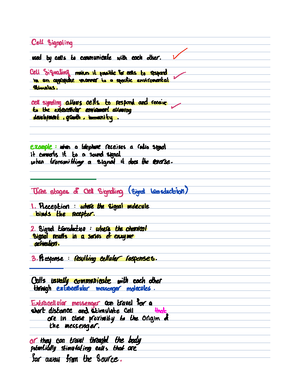 Cell Signaling
used by cells to communicate with each other.
Cell Signaling makes it possible for cells to respond
in an appropriate manner to a specific environmental
stimulus.
cell signaling allows cells to respond and
to the extracellular environment allowing
development, growth, immunity.
example: when a telephone receives a radio signal
it converts it to a sound signal
when transmitting a signal it does the reverse.
Three stages of Cell Signaling (Signal transduction)
1. Reception: where the signal molecule
binds the receptor.
2. Signal transduction: where the chemical
signal results in a series of enzyme
activation.
3. Response: resulting cellular responses.
Cells usually communicate with each other
through extracellular messenger molecules.
Extracellular messenger can travel for a
short distance and stimulate cell that
are in close proximity to the origin of
the messenger.
or they can travel throught the body
potentially stimulating cells that are
far away from the source.